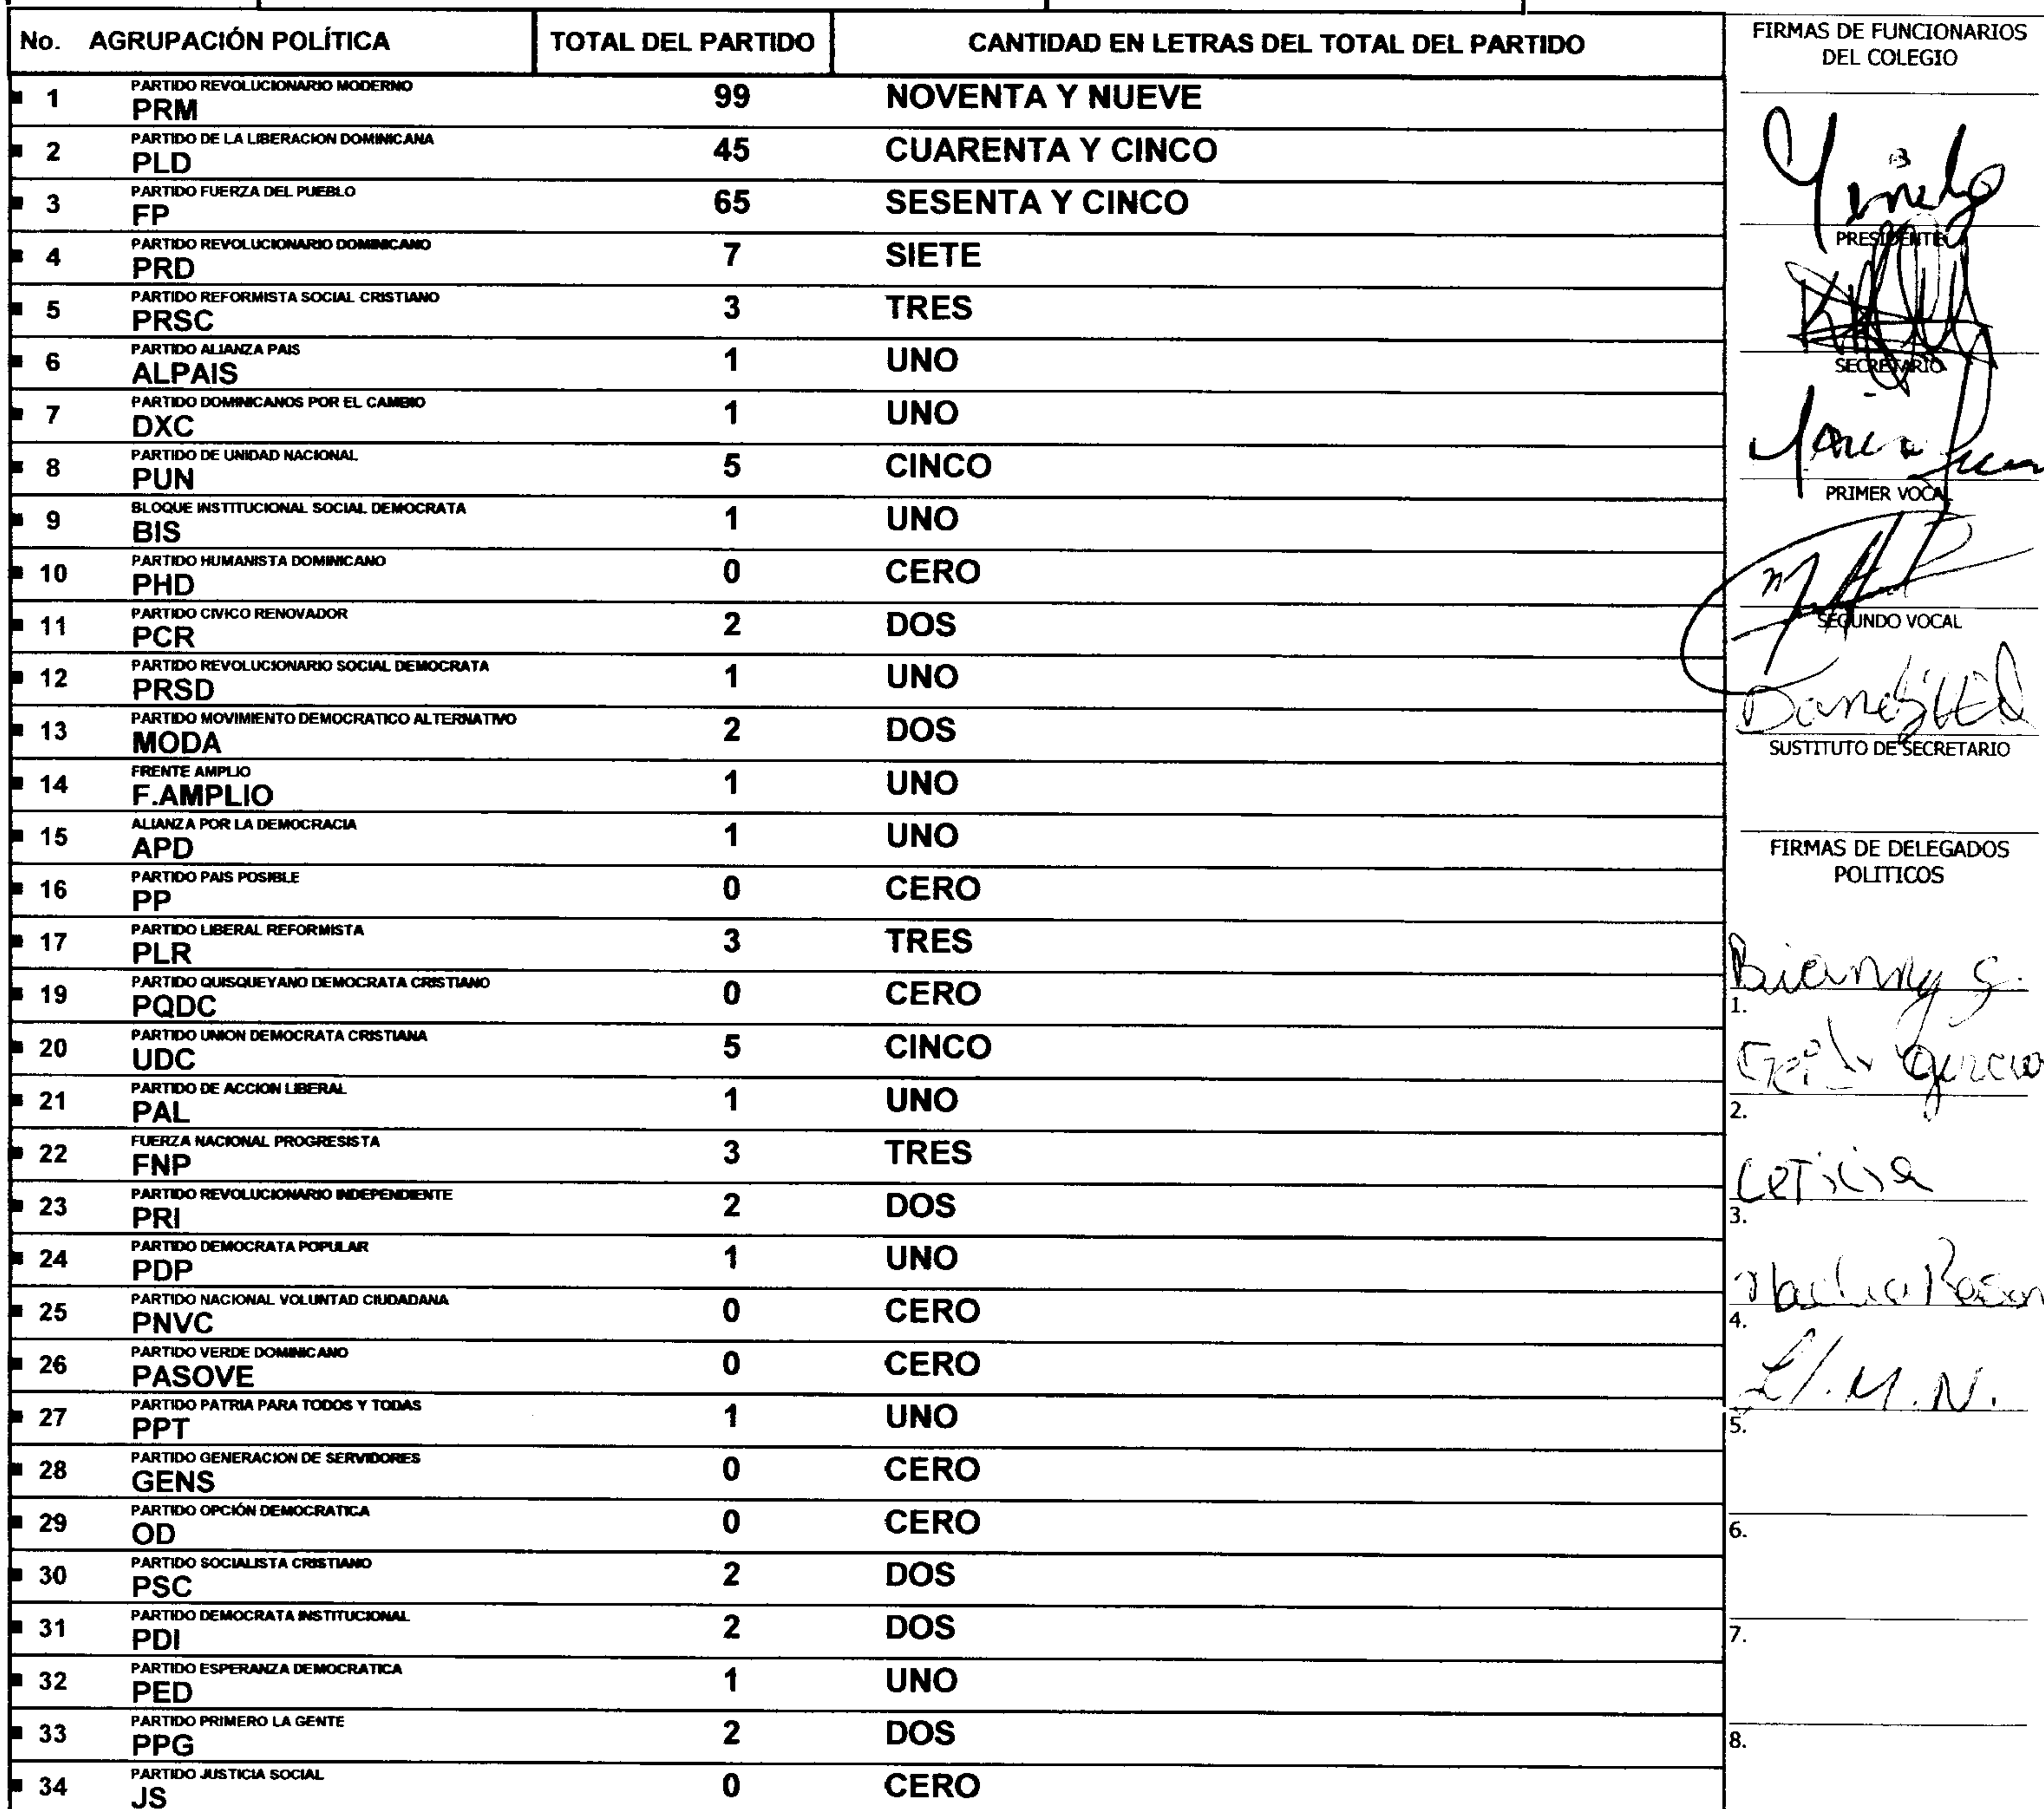 No. AGRUPACIÓN POLÍTICA TOTAL DEL PARTIDO CANTIDAD EN LETRAS DEL TOTAL DEL PARTIDO
PARTIDO REVOLUCIONARIO MODERNO
1 PRM 99 NOVENTA Y NUEVE
PARTIDO DE LA LIBERACION DOMINICANA
2 PLD 45 CUARENTA Y CINCO
PARTIDO FUERZA DEL PUEBLO
3 FP 65 SESENTA Y CINCO
PARTIDO REVOLUCIONARIO DOMINICANO
4 PRD 7 SIETE
PARTIDO REFORMISTA SOCIAL CRISTIANO
5 PRSC 3 TRES
PARTIDO ALIANZA PAIS
6 ALPAIS 1 UNO
PARTIDO DOMINICANOS POR EL CAMBIO
7 DXC 1 UNO
PARTIDO DE UNIDAD NACIONAL
8 PUN 5 CINCO
BLOQUE INSTITUCIONAL SOCIAL DEMOCRATA
9 BIS 1 UNO
PARTIDO HUMANISTA DOMINICANO
10 PHD 0 CERO
PARTIDO CIVICO RENOVADOR
11 PCR 2 DOS
PARTIDO REVOLUCIONARIO SOCIAL DEMOCRATA
12 PRSD 1 UNO
PARTIDO MOVIMIENTO DEMOCRATICO ALTERNATIVO
13 MODA 2 DOS
FRENTE AMPLIO
14 F.AMPLIO 1 UNO
ALIANZA POR LA DEMOCRACIA
15 APD 1 UNO
PARTIDO PAIS POSIBLE
16 PP 0 CERO
PARTIDO LIBERAL REFORMISTA
17 PLR 3 TRES
PARTIDO QUISQUEYANO DEMOCRATA CRISTIANO
19 PQDC 0 CERO
PARTIDO UNION DEMOCRATA CRISTIANA
20 UDC 5 CINCO
PARTIDO DE ACCION LIBERAL
21 PAL 1 UNO
FUERZA NACIONAL PROGRESISTA
22 FNP 3 TRES
PARTIDO REVOLUCIONARIO INDEPENDIENTE
23 PRI 2 DOS
PARTIDO DEMOCRATA POPULAR
24 PDP 1 UNO
PARTIDO NACIONAL VOLUNTAD CIUDADANA
25 PNVC 0 CERO
PARTIDO VERDE DOMINICANO
26 PASOVE 0 CERO
PARTIDO PATRIA PARA TODOS Y TODAS
27 PPT 1 UNO
PARTIDO GENERACION DE SERVIDORES
28 GENS 0 CERO
PARTIDO OPCIÓN DEMOCRATICA
29 OD 0 CERO
PARTIDO SOCIALISTA CRISTIANO
30 PSC 2 DOS
PARTIDO DEMOCRATA INSTITUCIONAL
31 PDI 2 DOS
PARTIDO ESPERANZA DEMOCRATICA
32 PED 1 UNO
PARTIDO PRIMERO LA GENTE
33 PPG 2 DOS
PARTIDO JUSTICIA SOCIAL
34 JS 0 CERO
FIRMAS DE FUNCIONARIOS
DEL COLEGIO
PRESIDENTE
SECRETARIO
PRIMER VOCAL
SEGUNDO VOCAL
SUSTITUTO DE SECRETARIO
FIRMAS DE DELEGADOS
POLITICOS
Bianny G.
1.
2.
Leticia
3.
4.
5.
6.
7.
8.